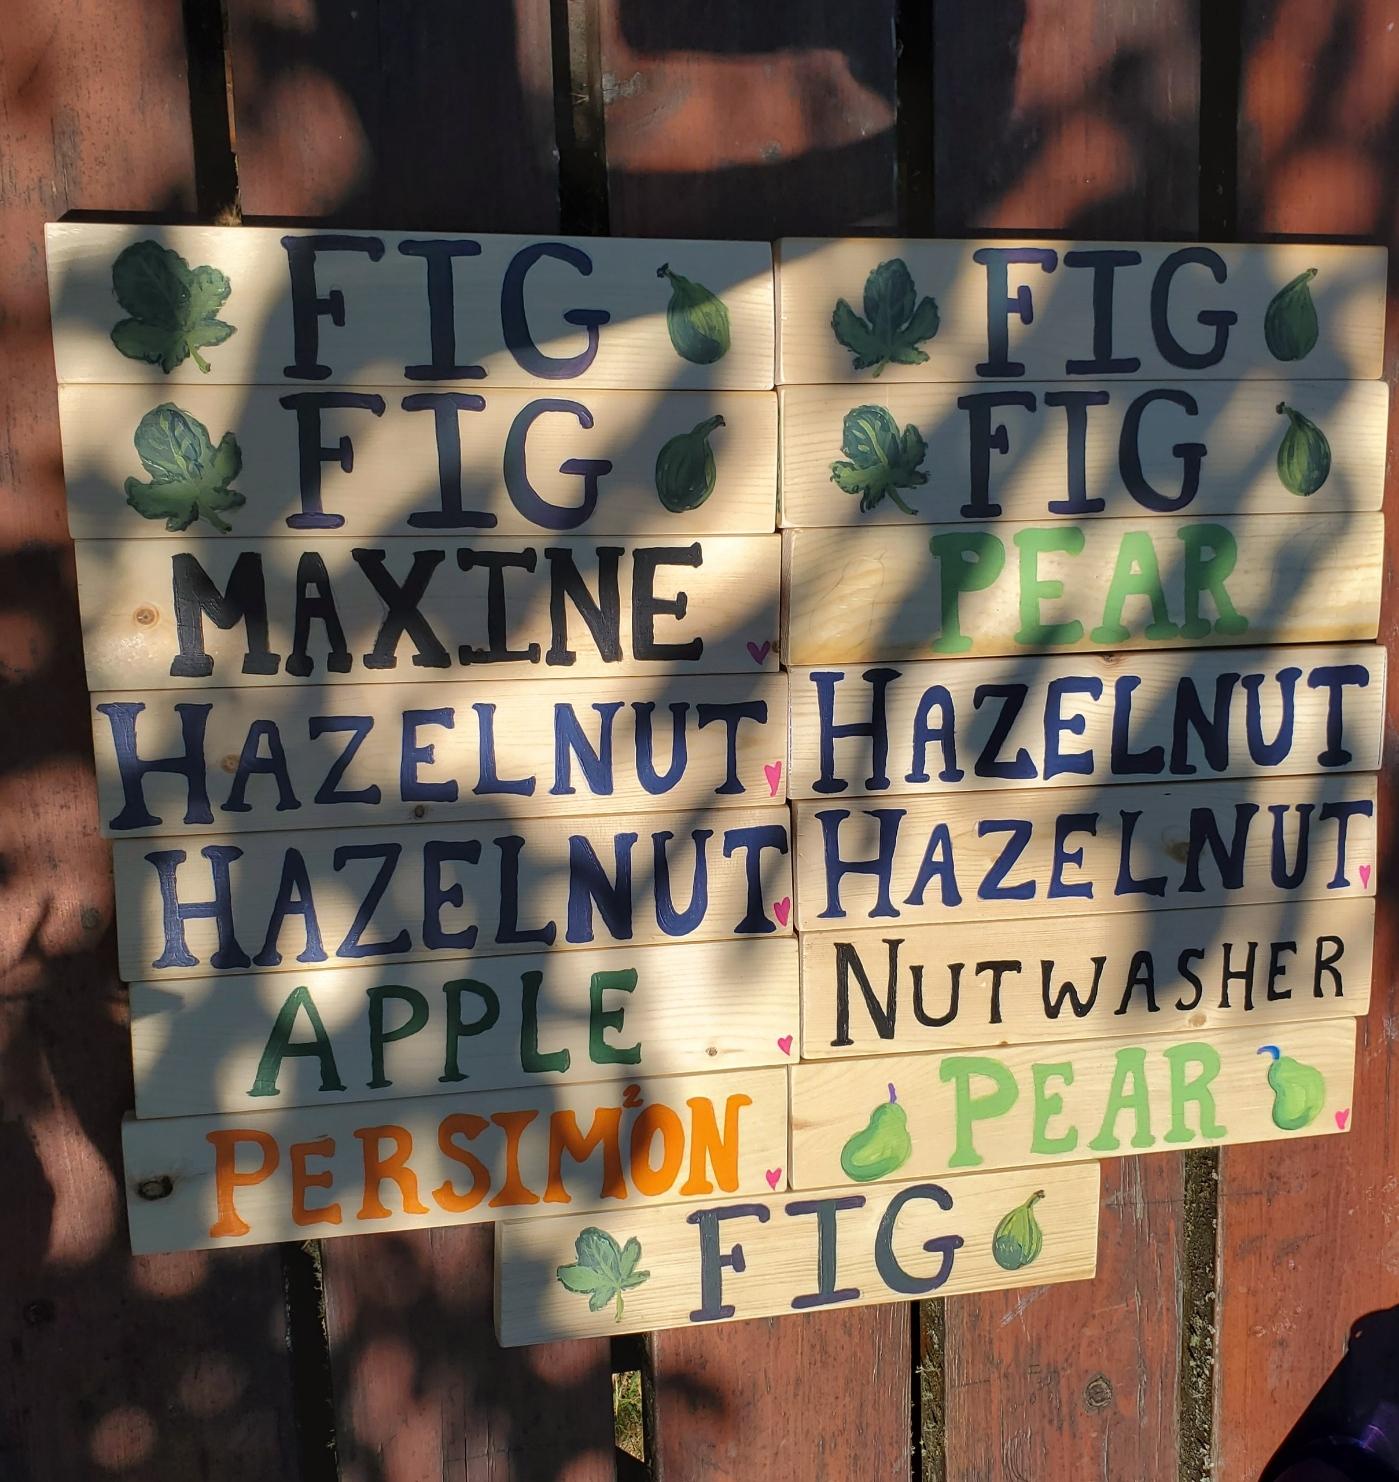 FIG
FIG
MAXINE
HAZELNUT
HAZELNUT
APPLE
PERSIMM²ON
FIG
FIG
PEAR
HAZELNUT
HAZELNUT
NUTWASHER
PEAR
FIG